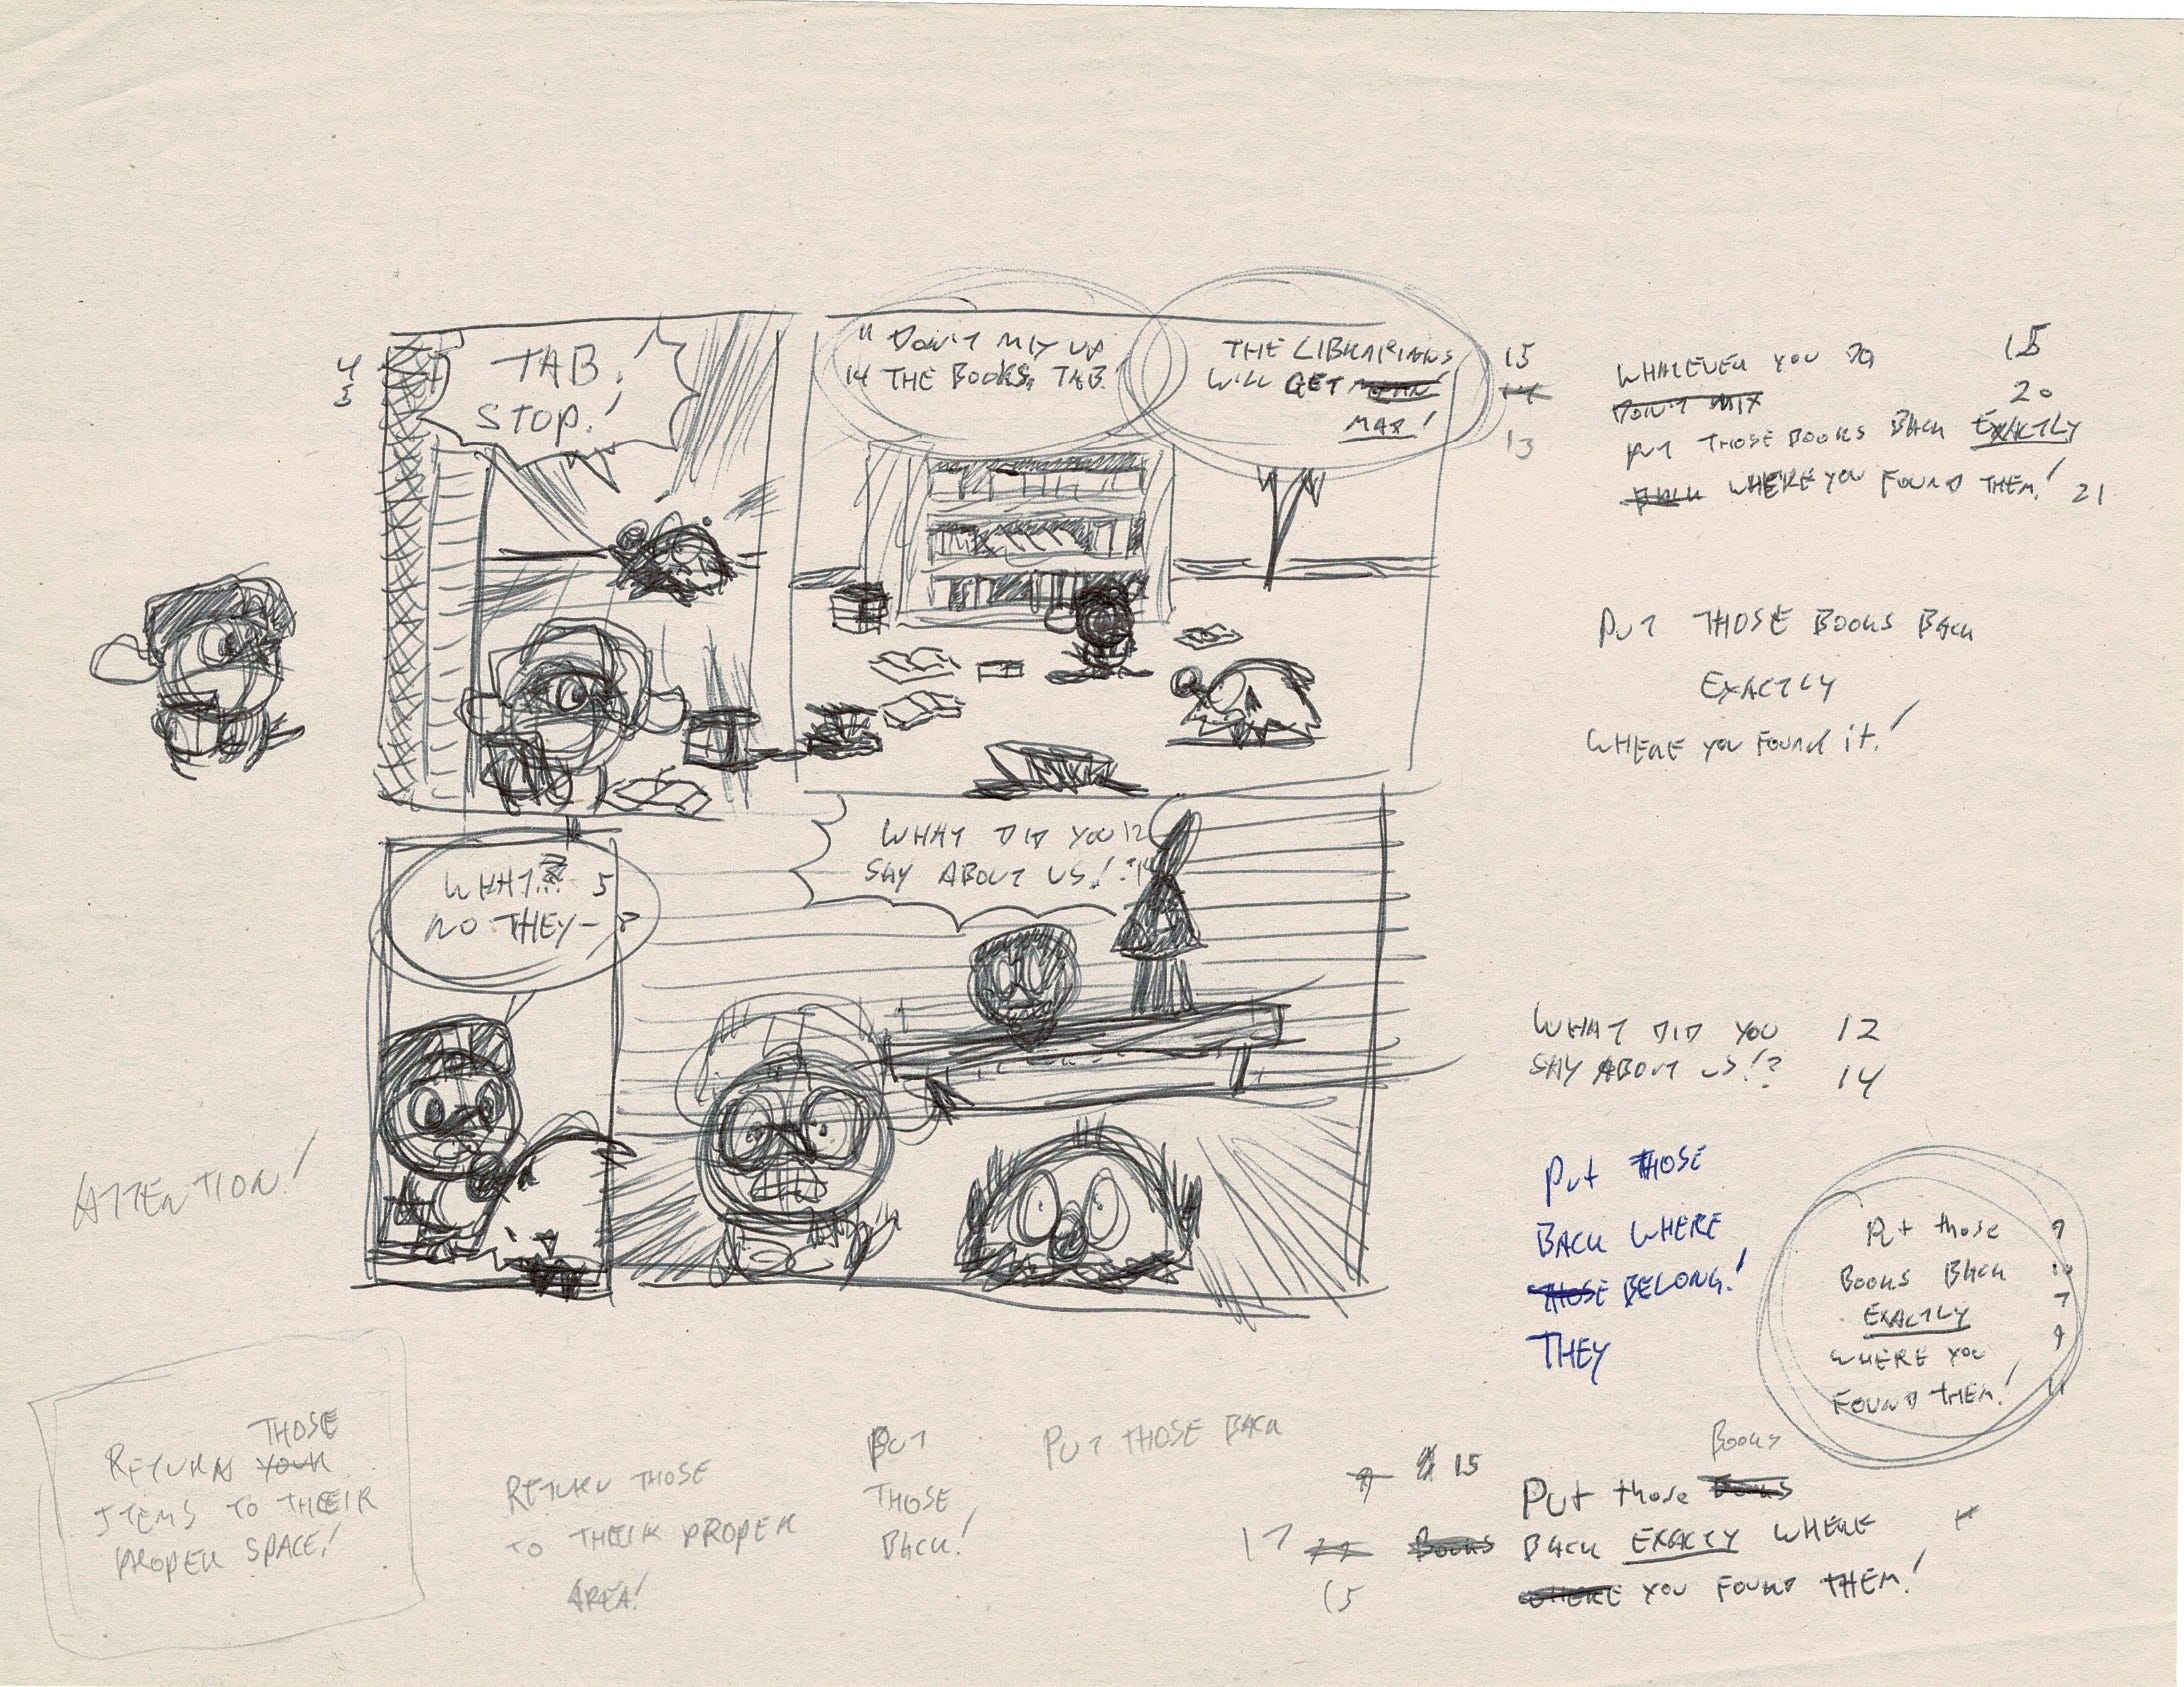 TAB!
STOP!
4
3
" DON'T MIX UP
14 THE BOOKS, TAB.
THE LIBRARIANS
WILL GET MEAN!
MAD!
15
14
13
WHATEVER YOU DO
15
DON'T MIX
20
PUT THOSE BOOKS BACK EXACTLY
BACK WHERE YOU FOUND THEM! 21
PUT THOSE BOOKS BACK
EXACTLY
WHERE YOU FOUND it!
WHAT 5
NO THEY-
WHAT DID YOU 12
SAY ABOUT US!? 14
WHAT DID YOU 12
SAY ABOUT US!? 14
ATTENTION!
Put THOSE
BACK WHERE
THOSE BELONG!
THEY
Put those 9
BOOKS BACK 10
EXACTLY 7
WHERE YOU 9
FOUND tHEM! 11
THOSE
RETURN YOUR
ITEMS TO THEIR
PROPER SPACE!
RETURN THOSE
TO THEIR PROPER
AREA!
PUT
THOSE
BACK!
PUT THOSE BACK
15
17
15
BOOKS
PUt those BOOKS
BOOKS BACK EXACTLY WHERE
WHERE YOU FOUND THEM!